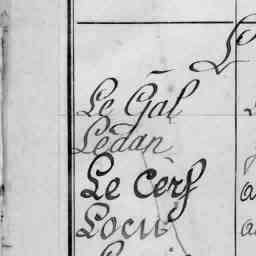 L
Le Gal
Ledan
Le Cerf
Locu